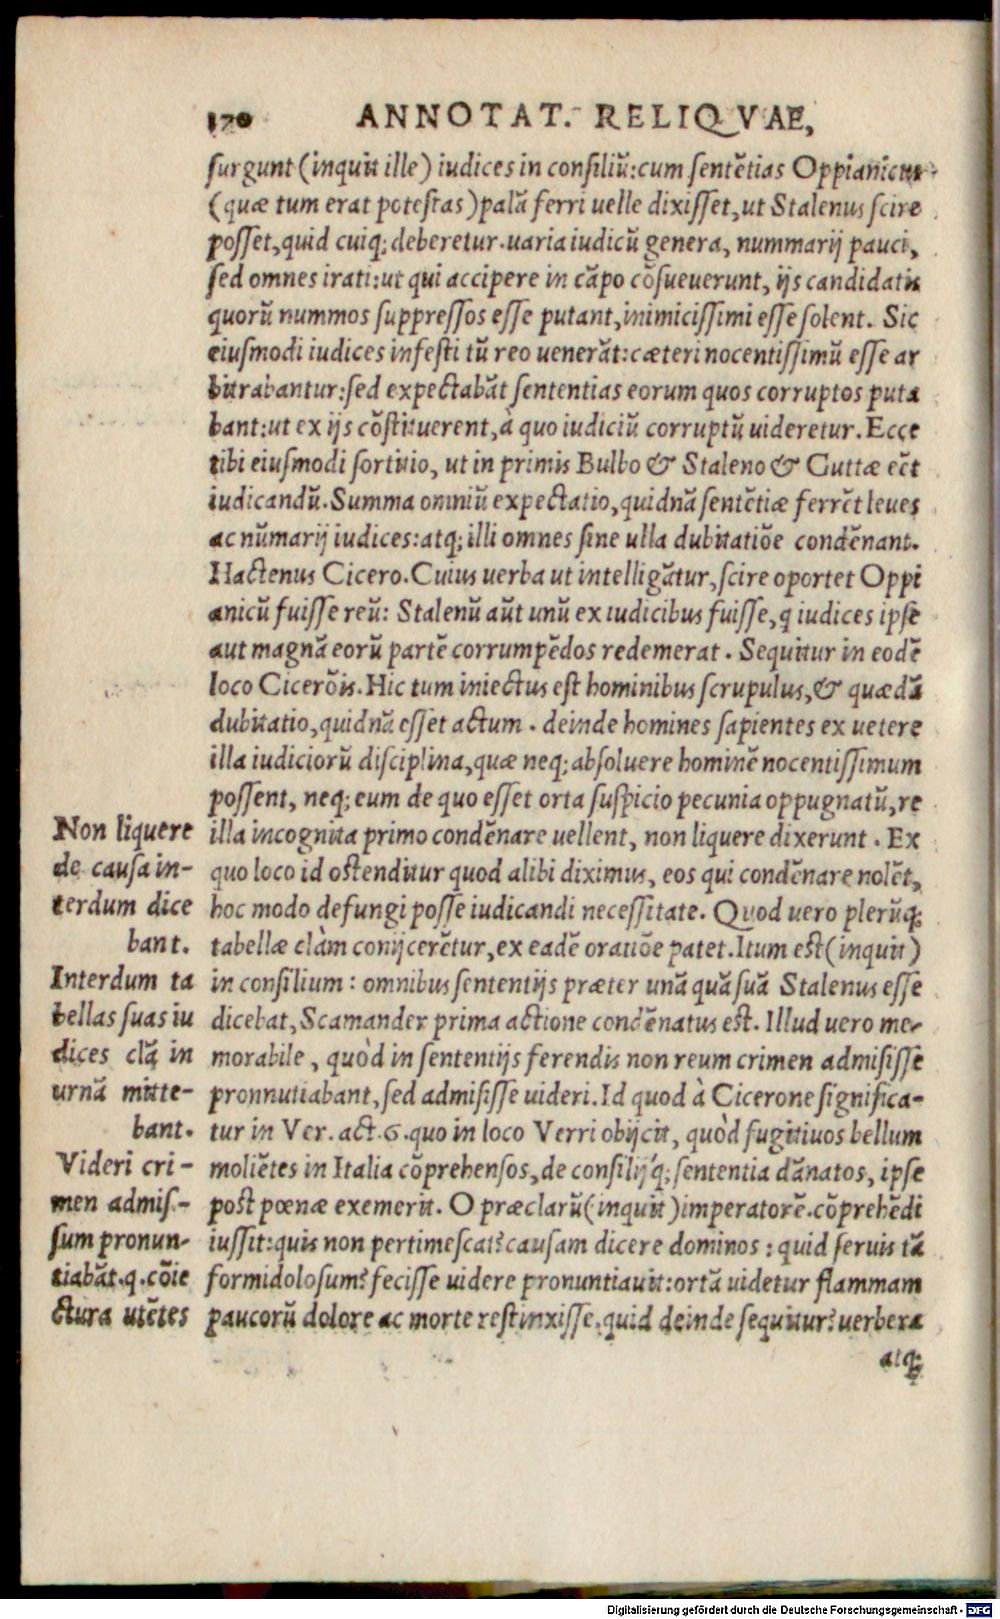 170 ANNOTAT. RELIQVAE,
surgunt (inquit ille) iudices in consiliũ: cum sentẽtias Oppianicus
(quæ tum erat potestas) palã ferri uelle dixisset, ut Stalenus scire
posset, quid cuiq; deberetur. uaria iudicũ genera, nummarij pauci,
sed omnes irati: ut qui accipere in cãpo cõsueuerunt, ijs candidatis
quorũ nummos suppressos esse putant, inimicissimi esse solent. Sic
eiusmodi iudices infesti tũ reo uenerãt: cæteri nocentissimũ esse ar
bitrabantur: sed expectabãt sententias eorum quos corruptos puta
bant: ut ex ijs cõstituerent, à quo iudiciũ corruptũ uideretur. Ecce
tibi eiusmodi sortitio, ut in primis Bulbo & Staleno & Guttæ eẽt
iudicandũ. Summa omniũ expectatio, quidnã sentẽtiæ ferrẽt leues
ac nũmarij iudices: atq; illi omnes sine ulla dubitatiõe condẽnant.
Hactenus Cicero. Cuius uerba ut intelligãtur, scire oportet Oppi
anicũ fuisse reũ: Stalenũ aũt unũ ex iudicibus fuisse, q iudices ipse
aut magnã eorũ partẽ corrumpẽdos redemerat. Sequitur in eodẽ
loco Cicerõis. Hic tum iniectus est hominibus scrupulus, & quædã
dubitatio, quidnã esset actum. deinde homines sapientes ex uetere
illa iudiciorũ disciplina, quæ neq; absoluere hominẽ nocentissimum
possent, neq; eum de quo esset orta suspicio pecunia oppugnatũ, re
illa incognita primo condẽnare uellent, non liquere dixerunt. Ex
quo loco id ostenditur quod alibi diximus, eos qui condẽnare nolẽt,
hoc modo defungi posse iudicandi necessitate. Quod uero plerũq;
tabellæ clàm conijcerẽtur, ex eadẽ oratiõe patet. Itum est (inquit)
in consilium: omnibus sententijs præter unã quã suã Stalenus esse
dicebat, Scamander prima actione condẽnatus est. Illud uero me-
morabile, quòd in sententijs ferendis non reum crimen admisisse
pronnutiabant, sed admisisse uideri. Id quod à Cicerone significa-
tur in Ver. act. 6. quo in loco Verri obijcit, quòd fugitiuos bellum
moliẽtes in Italia cõprehensos, de consilijq́; sententia dãnatos, ipse
post pœnæ exemerit. O præclarũ (inquit) imperatorẽ. cõprehẽdi
iussit: quis non pertimescat? causam dicere dominos: quid seruis tã
formidolosum? fecisse uidere pronuntiauit: ortã uidetur flammam
paucorũ dolore ac morte restinxisse. quid deinde sequitur? uerbera
atq;
Non liquere
de causa in-
terdum dice
bant.
Interdum ta
bellas suas iu
dices clã in
urnã mitte-
bant.
Videri cri-
men admis-
sum pronun-
tiabãt. q. cõie
ctura utẽtes
Digitalisierung gefördert durch die Deutsche Forschungsgemeinschaft - DFG